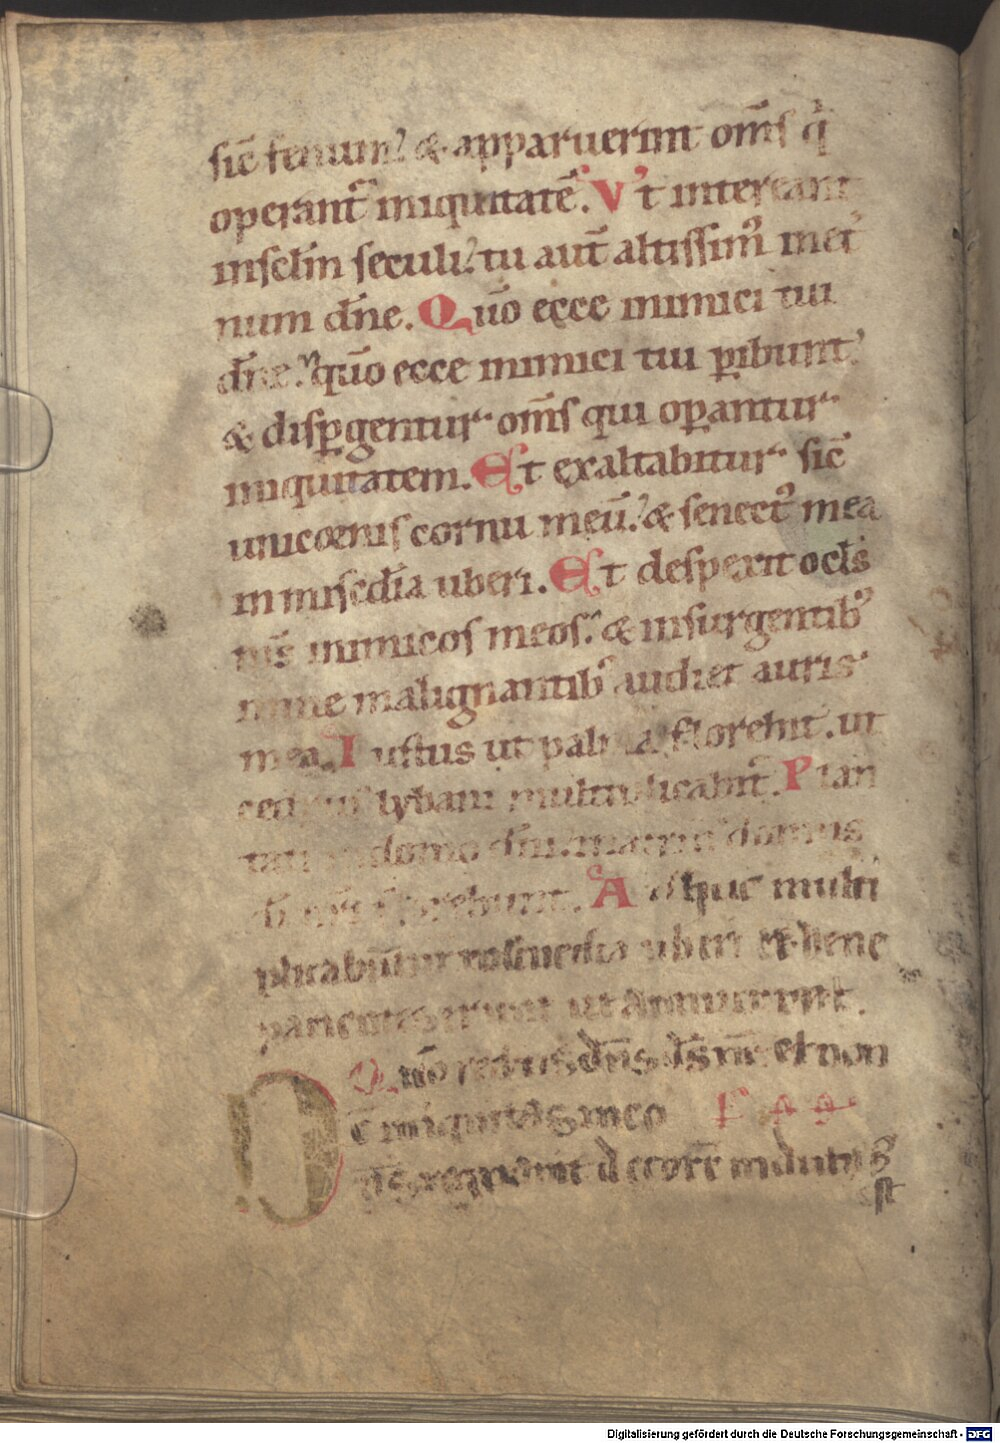 sic̄ fenum: & apparuerint om̄s q̇
operant᷑ iniquitatē. Vt intereant
in sc̄lm̄ seculi: tu aut̄ altissimꝰ in et᷑
num dn̄e. Qūo ecce inimici tui
dn̄e: qūo ecce inimici tui ꝑibunt:
& disꝑgentur om̄s qui oꝑantur
iniquitatem. Et exaltabitur sic̄
unicornis cornu meū: & senectꝰ mea
in misc̄dia uberi. Et despexit oclꝰs
mꝰs inimicos meos: & insurgentibꝰ
in me malignantibꝰ audiet auris
mea. Iustus ut palma florebit. ut
cedrus lybani multiplicabit᷑. Plan
tati in domo dn̄i: in atriis domus
di n̄ri florebunt. Adhuc multi
plicabunt᷑ in senecta uberi et bene
patientes erunt ut annuncient.
Qūo rectus dn̄s ds̄ nr̄ et non
ē iniquitas in eo
Dn̄s regnavit decorē indutꝰ
est
Digitalisierung gefördert durch die Deutsche Forschungsgemeinschaft - DFG